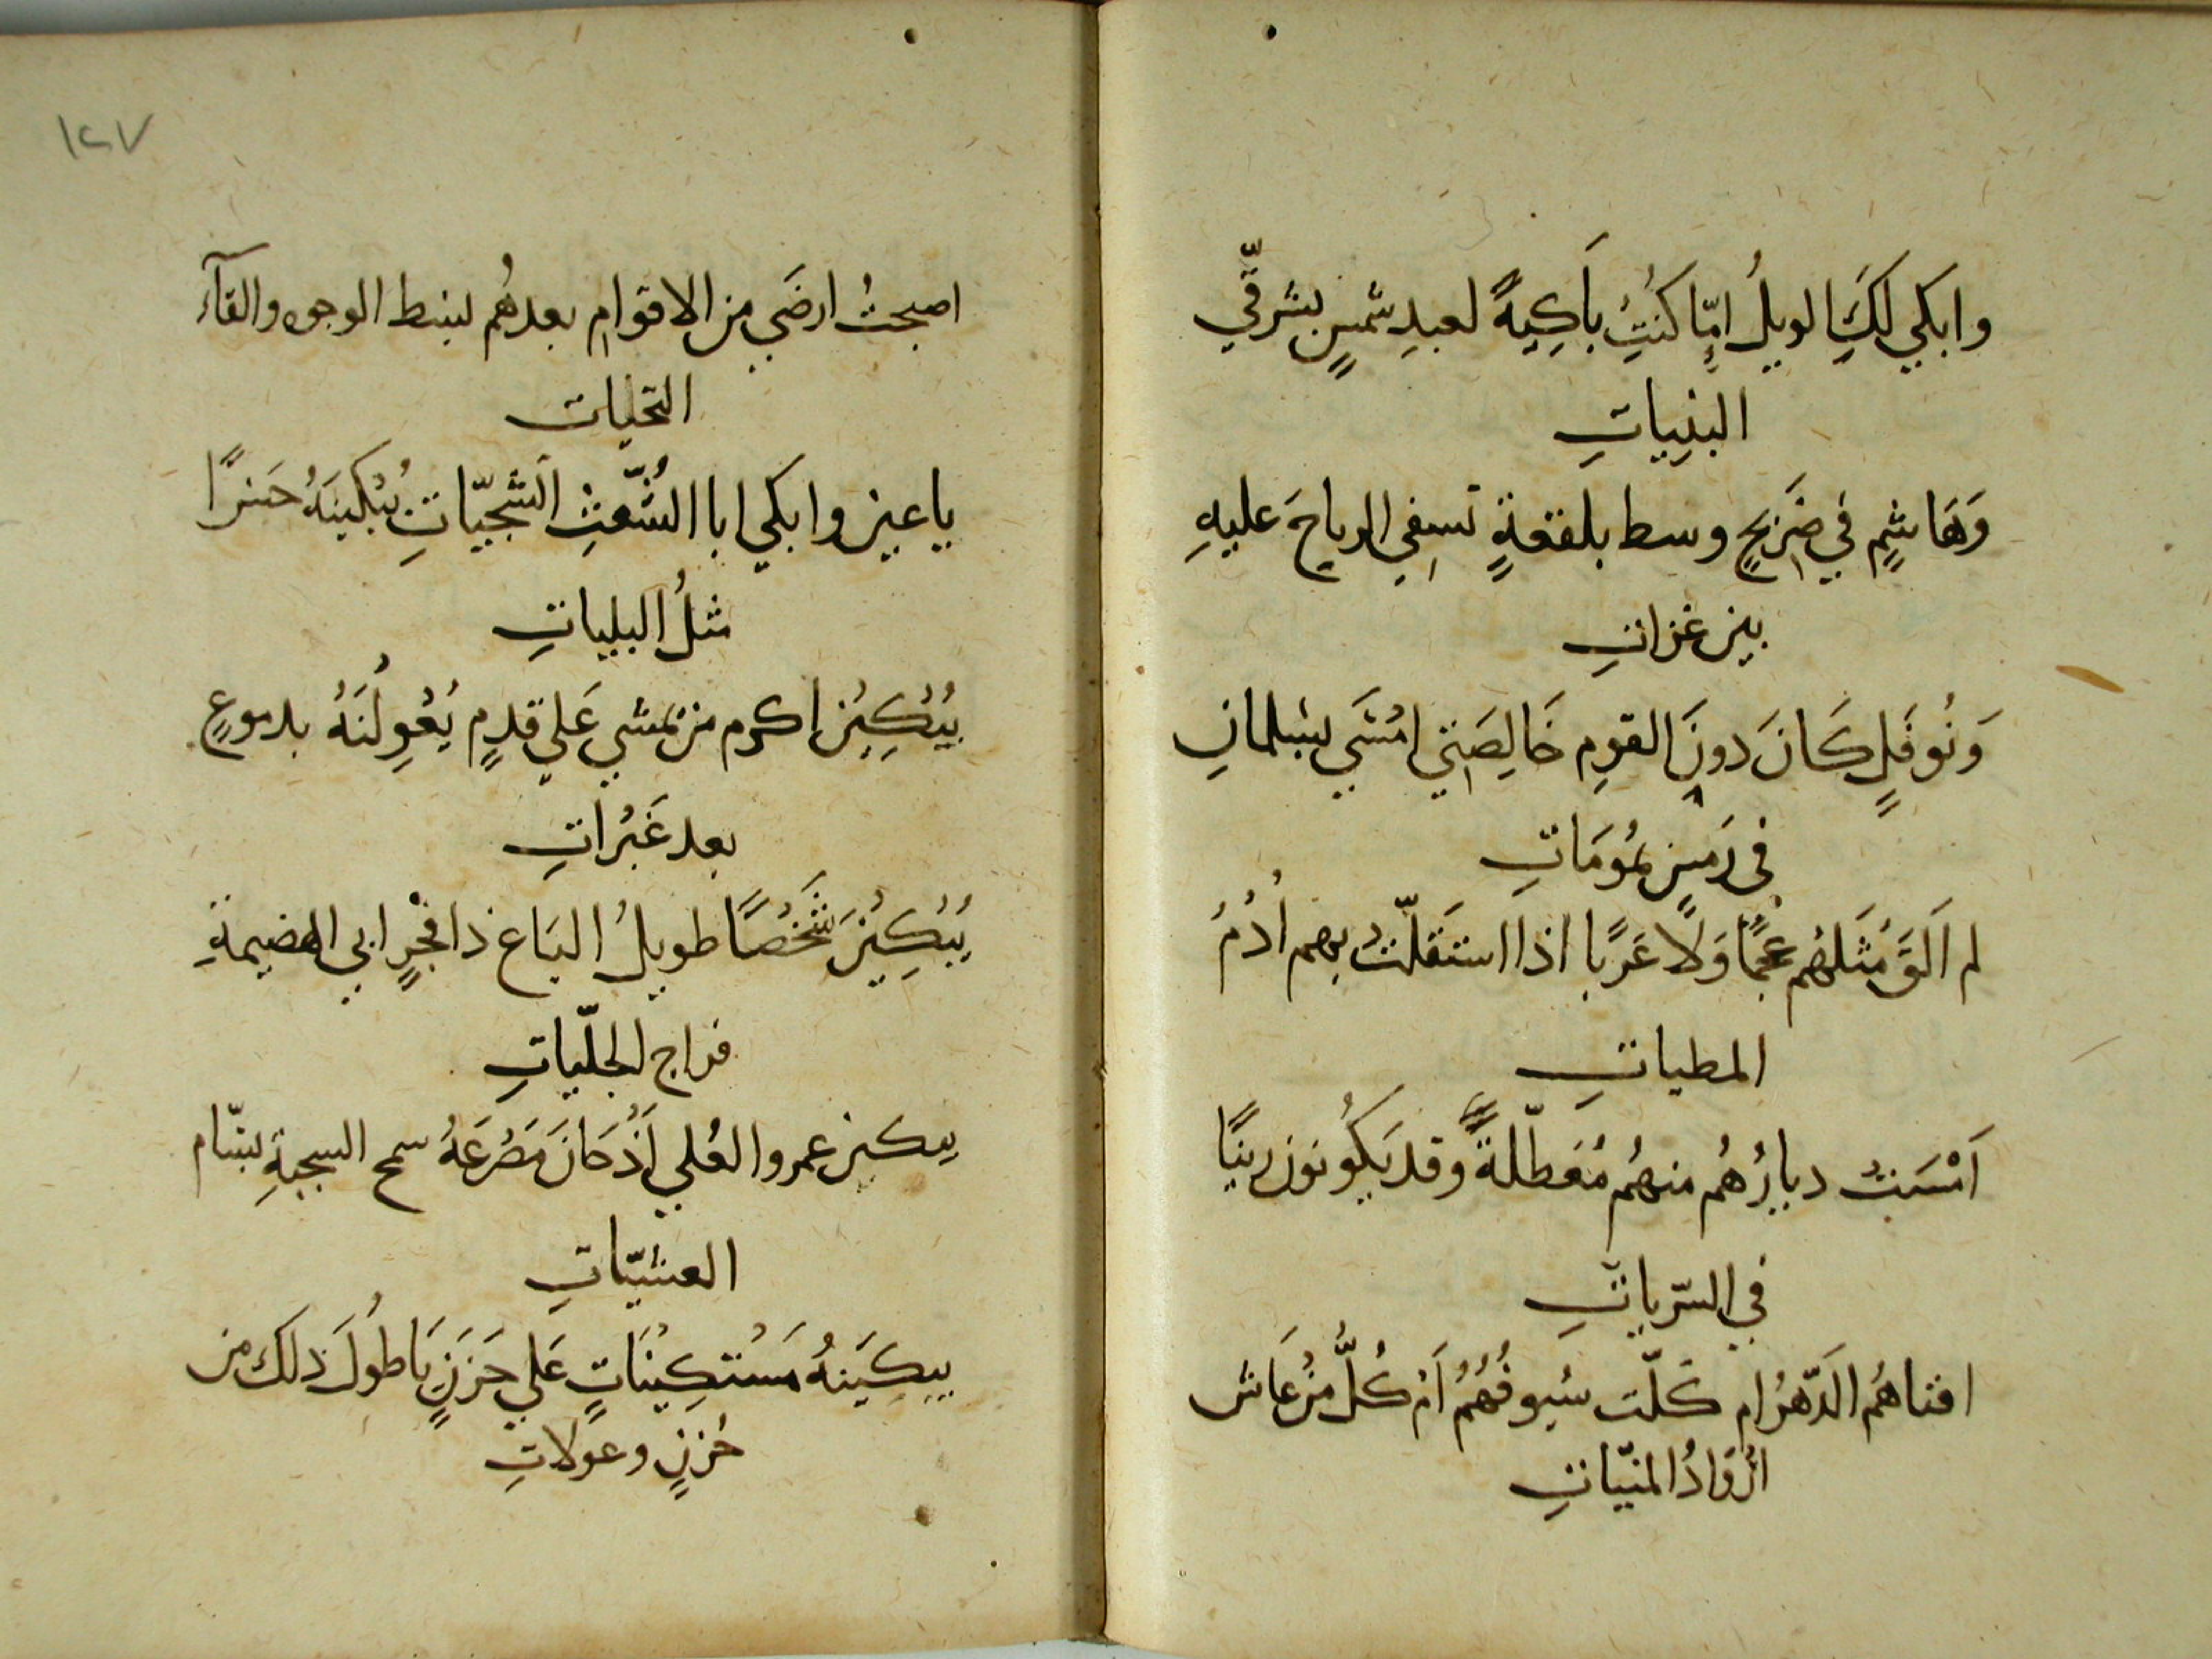 وابكي لكِ الويلُ امّا كنتِ بَاكِيةً لعبدِ شمسٍ بشرقّي
البنِياتِ
وَهَاشمٍ في ضَريحٍ وسط بلقعةٍ تسفِي الرياحَ عليهِ
بين غزاتِ
وَنُوفَلٍ كَانَ دونَ القومِ خَالِصَتي امْسَي بسلمانِ
في رَمسٍ بمُومَاتِ
لم اَلقَ مْثَلهُم عجمًا وَلَا عَرَبا اذا استَقلّتْ بهم أُدُمُ
المطياتِ
اَمْسَتْ ديارُهُم منهُم مُعَطّلةً وقد يَكُونون زينًا
في السّرياتِ
افناهُم الَدّهرُ ام كَلّت سُيوفُهُمُ اَمْ كُلُّ مْن عَاش
ازْوَادُ المنيّاتِ
١٢٧
اصبحتُ ارضَي من الاقوامِ بعدهُم لبسط الوجوه والقآء
التحيات
يا عين وابكي ابا الشُّعثِ الشجيّاتِ يُبْكينَهُ حسرًا
مثلُ البلياتِ
يُبْكِينْ اكرم من يمشي عَلي قدمٍ يُعْوِلُنَهُ بدموعٍ
بعد عَبْراتِ
يُبْكِيْنَ شَخْصًا طويلُ البَاع ذا فجْرٍ ابي الهضيمةِ
فراج الجلّياتِ
يبكين عمرو العُلي اَذْ حَانَ مَصْرَعَهُ سمح السجيةِ بسّام
العشيّاتِ
يبكَينهُ مَسْتكِيْنَاتٍ عَلي حَزَنٍ يَا طُولَ ذلك من
حُزنٍ وعولاتِ